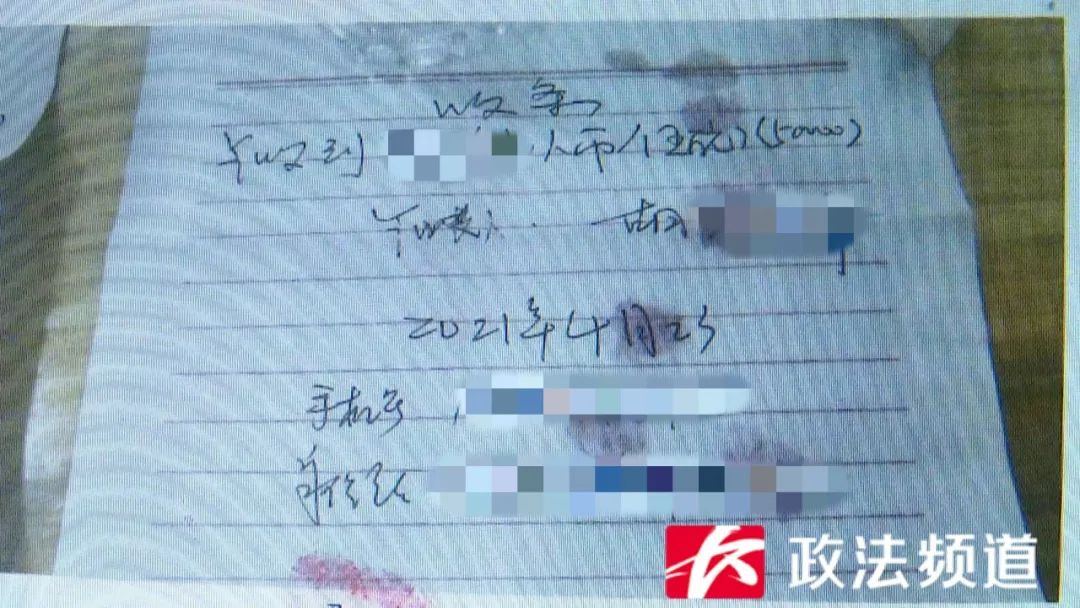 收条
今收到 人币 伍万(50000)
胡
2021年4月23
手机号
身份证
政法频道